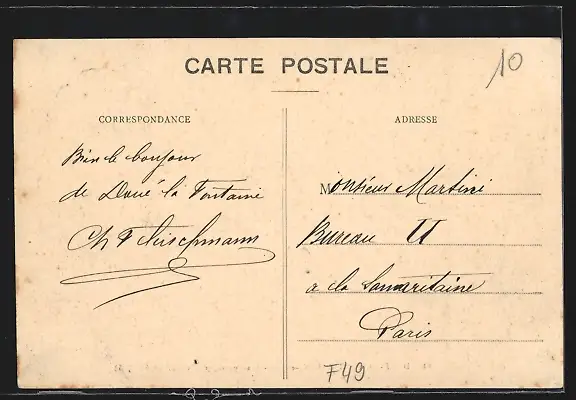 CARTE POSTALE
10
CORRESPONDANCE
Bien le bonjour
de Doué la Fontaine
Ch Fleischmann
ADRESSE
Monsieur Martini
Bureau U
a la Samaritaine
Paris
F49